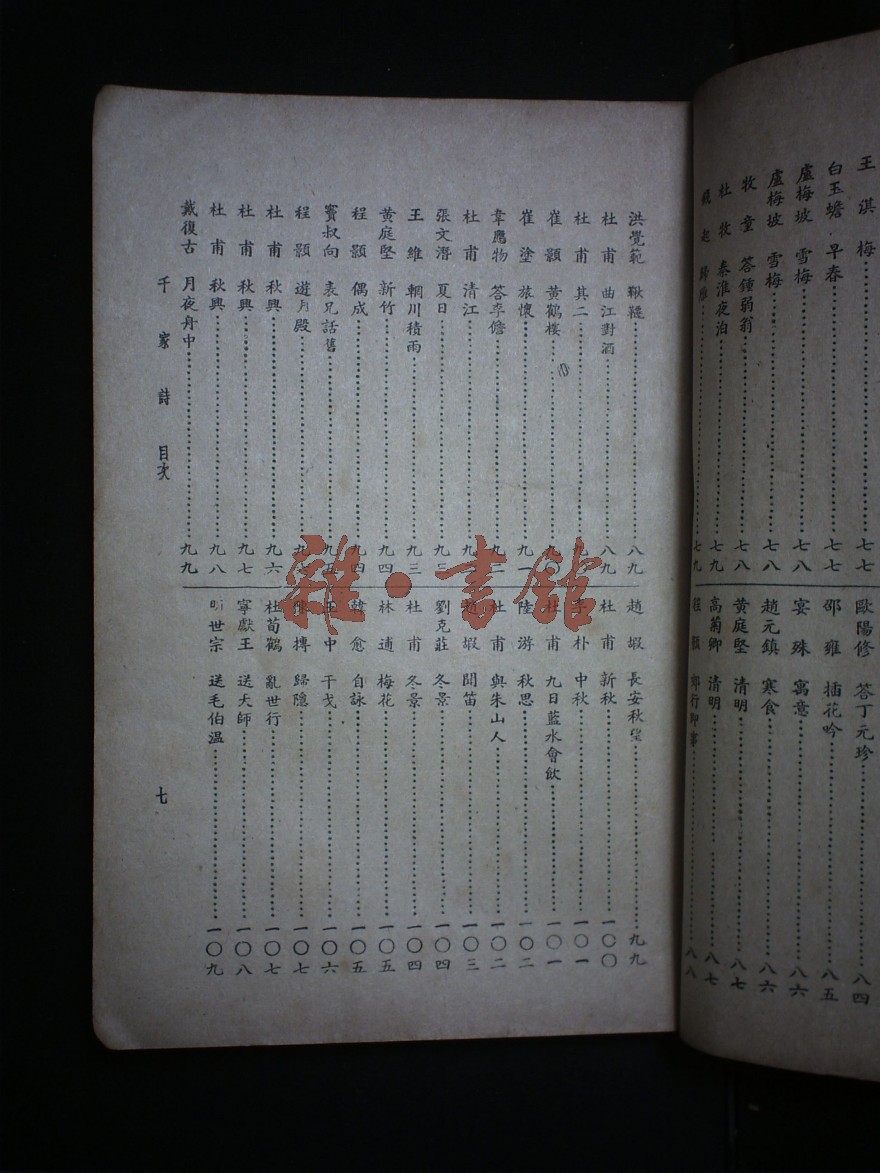 王淇 梅 七七
白玉蟾 早春 七七
盧梅坡 雪梅 七八
盧梅坡 雪梅 七八
牧童 答鍾弱翁 七八
杜牧 秦淮夜泊 七九
錢起 歸雁 七九
歐陽修 答丁元珍 八四
邵雍 插花吟 八五
宴殊 寓意 八六
趙元鎮 寒食 八六
黃庭堅 清明 八七
高菊卿 清明 八七
程顥 郊行即事 八八
洪覺範 鞦韆 八九
杜甫 曲江對酒 八九
杜甫 其二
崔顥 黃鶴樓 九〇
崔塗 旅懷 九一
韋應物 答李儋 九二
杜甫 清江 九二
張文潛 夏日 九三
王維 輞川積雨 九三
黃庭堅 新竹 九四
程顥 偶成 九四
竇叔向 表兄話舊 九五
程顥 遊月殿
杜甫 秋興 九六
杜甫 秋興 九七
杜甫 秋興 九八
戴復古 月夜舟中 九九
趙嘏 長安秋望 九九
杜甫 新秋 一〇〇
李朴 中秋 一〇一
杜甫 九日藍水會飲 一〇一
陸游 秋思 一〇二
杜甫 與朱山人 一〇二
趙嘏 聞笛 一〇三
劉克莊 冬景 一〇四
杜甫 冬景 一〇四
林逋 梅花 一〇五
韓愈 自詠 一〇五
王中 干戈 一〇六
陳摶 歸隱 一〇七
杜荀鶴 亂世行 一〇七
寧獻王 送天師 一〇八
明世宗 送毛伯溫 一〇九
千家詩 目次 七
雜·書館